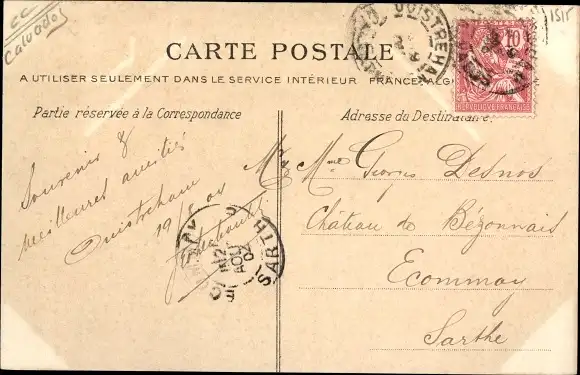 CC
Calvados
1515
OUISTREHAM
10
REPUBLIQUE FRANÇAISE
CARTE POSTALE
A UTILISER SEULEMENT DANS LE SERVICE INTÉRIEUR FRANCE, ALG
Partie réservée à la Correspondance
Adresse du Destinataire.
Souvenir &
meilleures amitiés
Ouistreham
19/8 04
Mr & Mme Georges Desnos
Château de Bézonnais
Ecommoy
Sarthe
AOUT
04
SARTHE